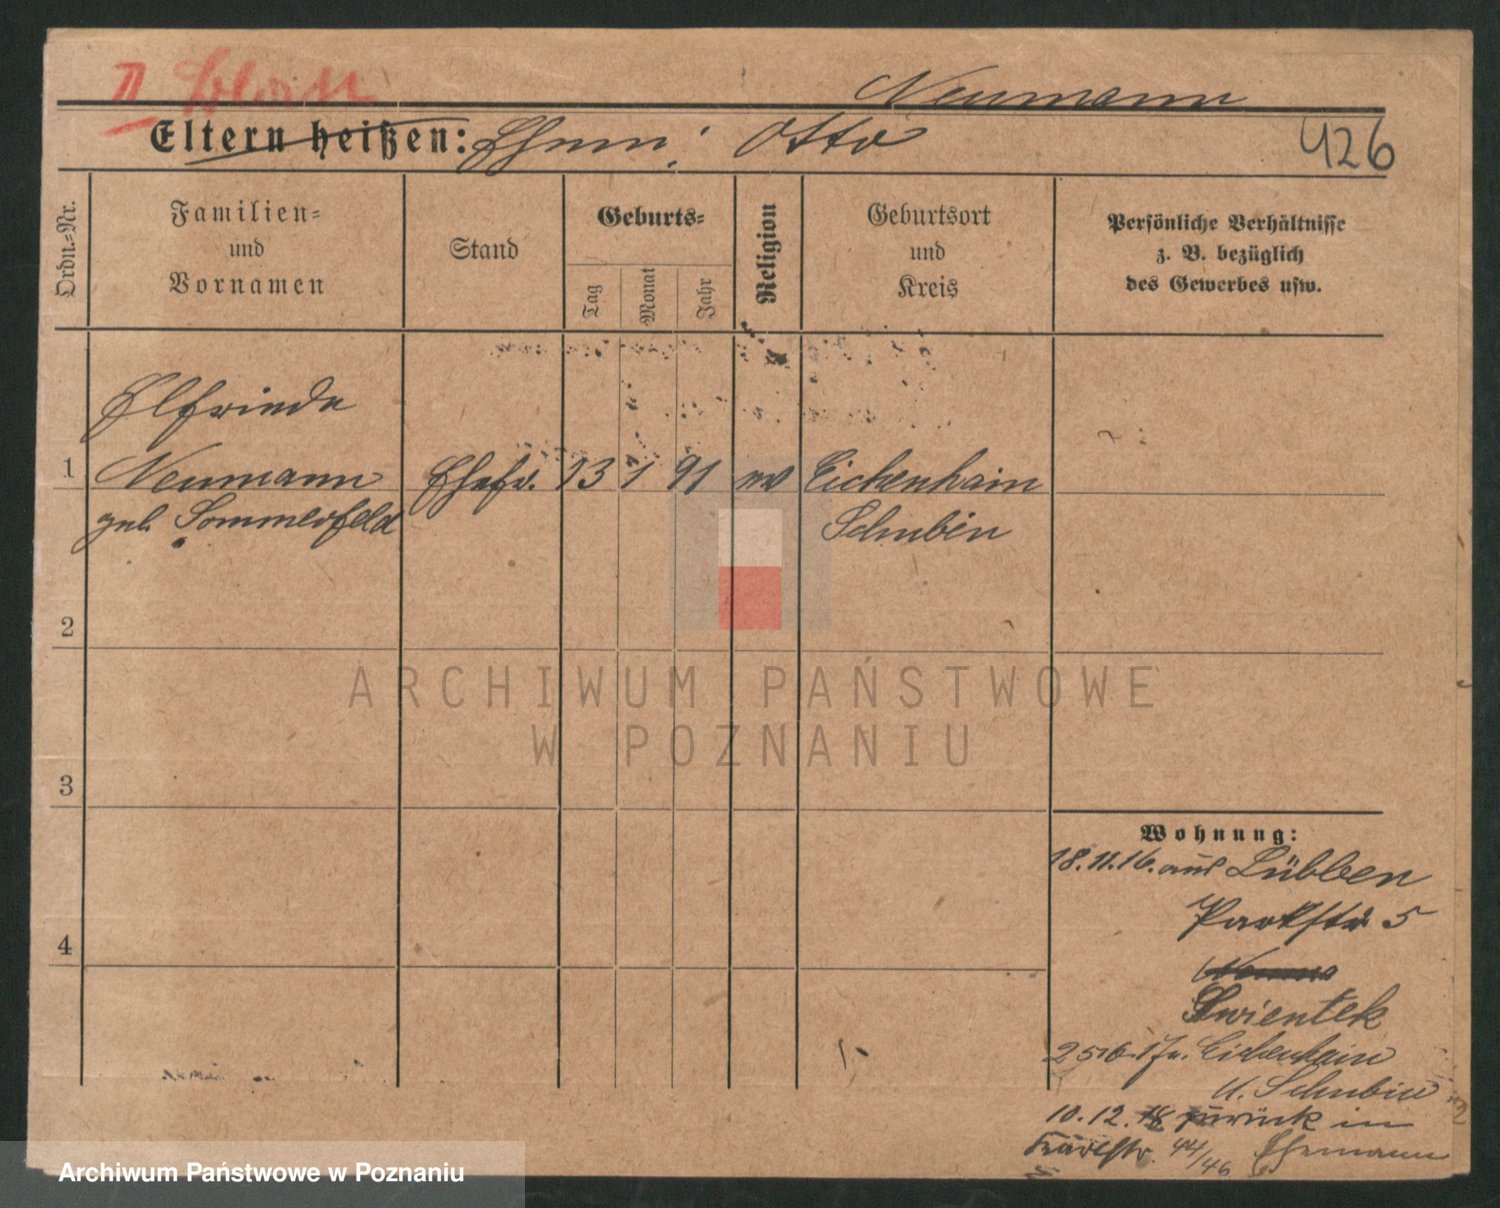 Neumann
Eltern heißen: Ehem: Otto
426
Ordn.-Nr.
Familien-
und
Vornamen
Stand
Geburts-
Tag
Monat
Jahr
Religion
Geburtsort
und
Kreis
Persönliche Verhältnisse
z. B. bezüglich
des Gewerbes usw.
Elfriede
1 Neumann Ehefr. 13 1 91 ev Eichenhain
geb. Sommerfeld Schubin
2
ARCHIWUM PAŃSTWOWE
W POZNANIU
3
Wohnung:
18.11.16. aus Lübben
Parkstr 5
4
Swientek
Eichenhain
Schubin
10.12.18 zurück in
44/46 Ehemann
Archiwum Państwowe w Poznaniu